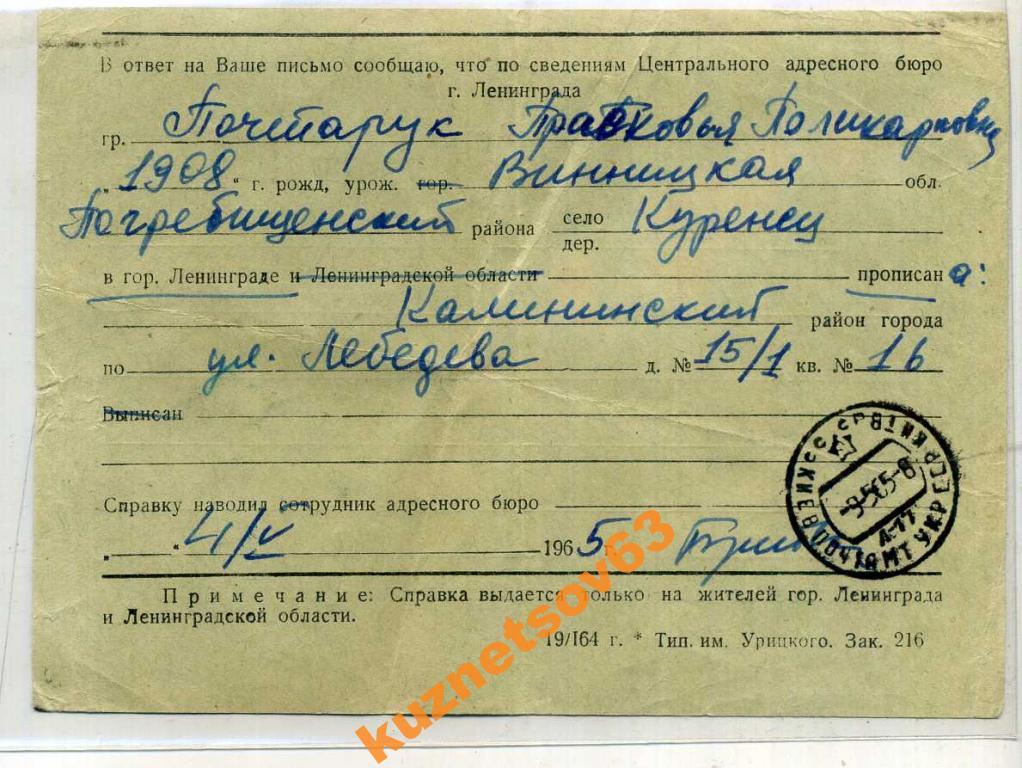 В ответ на Ваше письмо сообщаю, что по сведениям Центрального адресного бюро
г. Ленинграда
гр. Почтарук Прасковья Поликарповна
„1908“ г. рожд, урож. гор. Винницкая обл.
Погребищенский района село Куренец
дер.
в гор. Ленинграде и Ленинградской области прописана:
Калининский район города
по ул. Лебедева д. № 15/1 кв. № 16
Выписан
Справку наводил сотрудник адресного бюро
„ “ 4/V 1965 г.
Примечание: Справка выдается только на жителей гор. Ленинграда
и Ленинградской области.
19/I64 г. * Тип. им. Урицкого. Зак. 216
КИЕВ ПОЧТАМТ УКР
-9-565-8
А-77
kuznetsov63